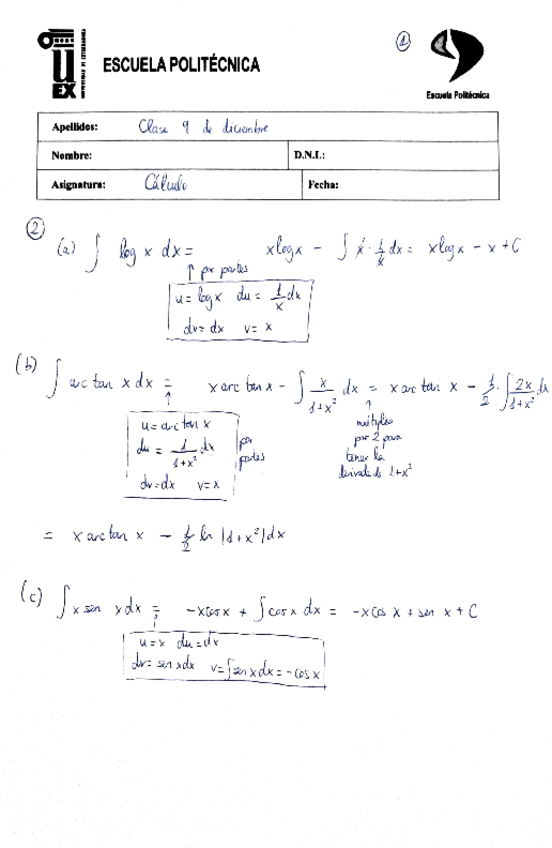 1
UEX
UNIVERSIDAD DE EXTREMADURA
ESCUELA POLITÉCNICA
Escuela Politécnica
Apellidos: Clase 9 de diciembre
Nombre: D.N.I.:
Asignatura: Cálculo Fecha:
2
(a) ∫ log x dx = x log x - ∫ x · 1/x dx = x log x - x + C
↑ por partes
u = log x du = 1/x dx
dv = dx v = x
(b) ∫ arc tan x dx = x arc tan x - ∫ x/(1+x²) dx = x arc tan x - 1/2 · ∫ 2x/(1+x²) dx
↑ ↑
u = arc tan x
du = 1/(1+x²) dx
dv = dx v = x
por
partes
múltiplico
por 2 para
tener la
derivada de 1+x²
= x arc tan x - 1/2 ln |1+x²| dx
(c) ∫ x sen x dx = -x cos x + ∫ cos x dx = -x cos x + sen x + C
u = x du = dx
dv = sen x dx v = ∫ sen x dx = - cos x